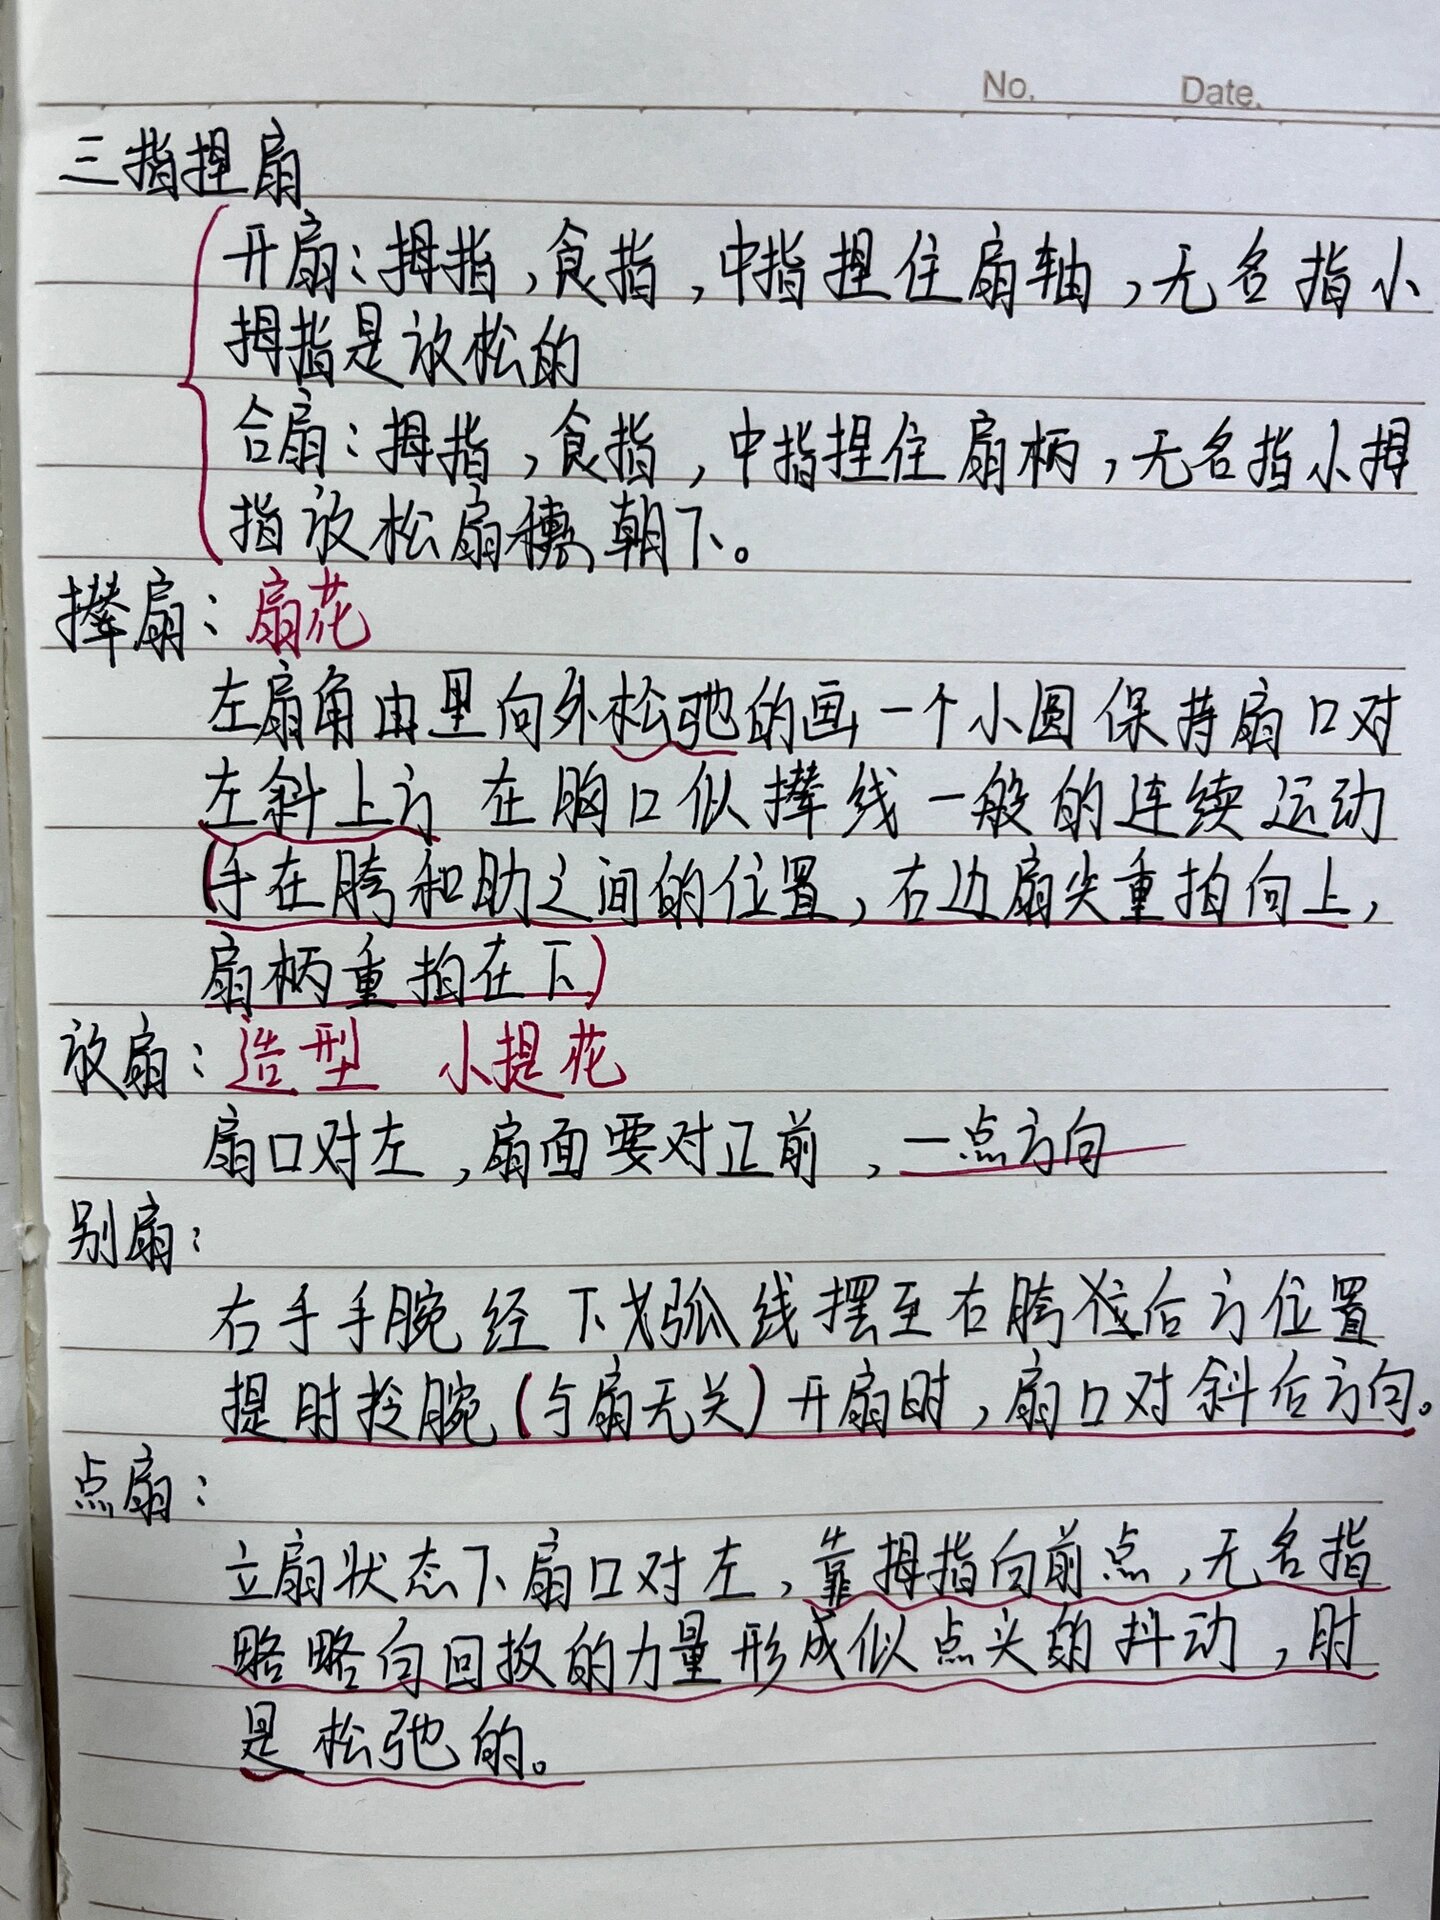 No. Date.
三指捏扇
开扇：拇指，食指，中指捏住扇轴，无名指小
拇指是放松的
合扇：拇指，食指，中指捏住扇柄，无名指小拇
指放松扇穗朝下。
撵扇：扇花
左扇角由里向外松弛的画一个小圆保持扇口对
左斜上方 在胸口似撵线一般的连续运动
（手在胯和肋之间的位置，右边扇尖重拍向上，
扇柄重拍在下）
放扇：造型 小提花
扇口对左，扇面要对正前，一点方向
别扇：
右手手腕经下弧线摆至右胯后方位置
提肘拎腕（与扇无关）开扇时，扇口对斜后方向。
点扇：
立扇状态下扇口对左，靠拇指向前点，无名指
略略向回扳的力量形成似点头的抖动，肘
是松弛的。